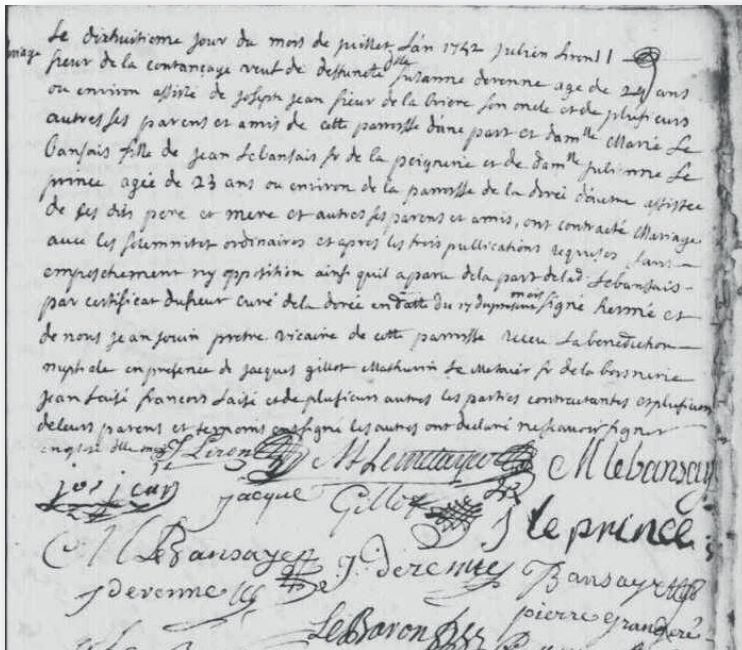 Le dixhuitieme jour du mois de juillet Lan 1742 Julien Liron
mariage
sieur de la contançaye veuf de deffuncte dlle susanne derenne age de 24 ans
ou environ assisté de joseph jean sieur de la briere son oncle et de plusieurs
autres ses parens et amis de cette parroisse d'une part et damlle Marie Le
bansais fille de jean Lebansais sr de la peignerie et de damlle julienne Le
prince agée de 23 ans ou environ de la parroisse de la dorée d'autre assistee
de ses dits pere et mere et autres ses parens et amis, ont contracté Mariage
avec les solemnites ordinaires et apres les trois publications requises, sans
empeschement ny opposition ainsi quil a paru de la part de lad. Lebansais
par certificat du sieur curé de la dorée en datte du 17 du present mois signé hermé et
de nous jean jouin pretre vicaire de cette parroisse receu La benediction
nuptiale en presence de jacques gillot Mathurin Le Metaier sr de la bersnerie
jean Laisé francois Laisé et de plusieurs autres les parties contractantes et plusieurs
de leurs parens et temoins ont signé les autres ont declaré ne sçavoir signer
J Liron M Lemetayer M lebansay
jos jean jacque Gillot J le prince
M Le Bansayes J deremie Bansayes
J derenne Le Baron pierre grandere